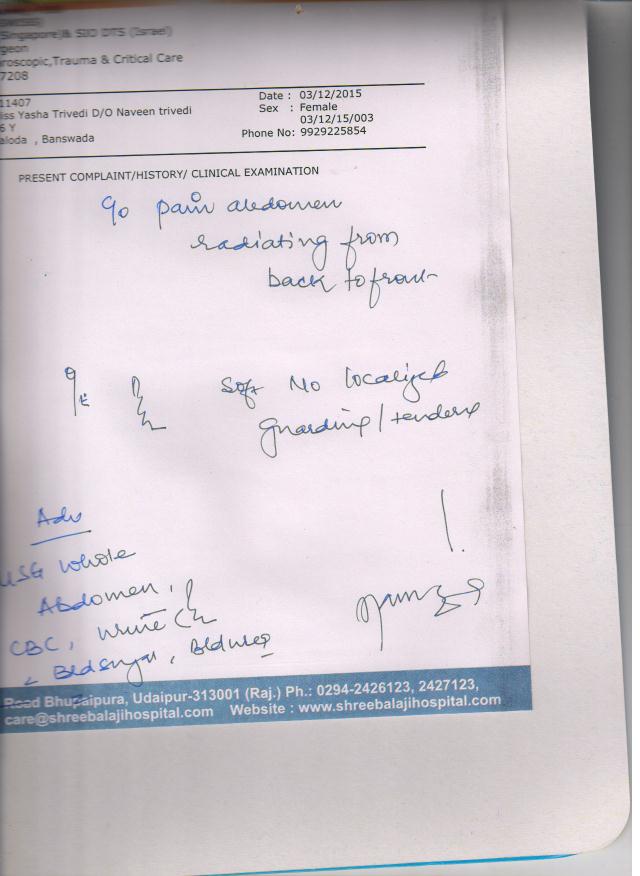 (Singapore)& SIID DTS (Israel)
geon
roscopic,Trauma & Critical Care
7208
11407
iss Yasha Trivedi D/O Naveen trivedi
6 Y
aloda , Banswada
Date : 03/12/2015
Sex : Female
03/12/15/003
Phone No: 9929225854
PRESENT COMPLAINT/HISTORY/ CLINICAL EXAMINATION
pain abdomen
radiating from
back to front
Soft No localized
guarding/
Adv
USG whole
Abdomen,
CBC, urine
Bld sugar, Bld urea
Road Bhupalpura, Udaipur-313001 (Raj.) Ph.: 0294-2426123, 2427123,
care@shreebalajihospital.com Website : www.shreebalajihospital.com